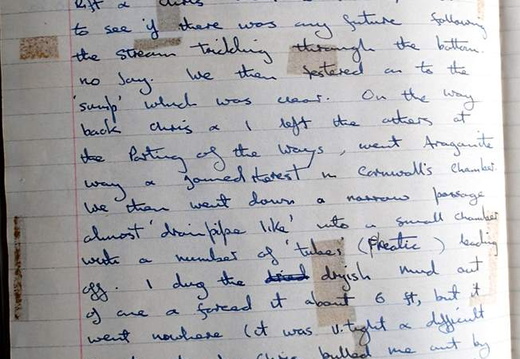 left & Chris
to see if there was any future following
the stream trickling through the bottom.
no Joy. We then pestered on to the
'sump' which was clear. On the way
back Chris & I left the others at
the Parting of the Ways, went Aragonite
way & joined the rest in Cornwall's chamber.
We then went down a narrow passage
almost 'drainpipe like' into a small chamber
with a number of 'tubes' (Phreatic) leading
off. I dug the dryish mud out
of one & forced it about 6 ft, but it
went nowhere (it was V. tight & difficult
Chris pulled me out by